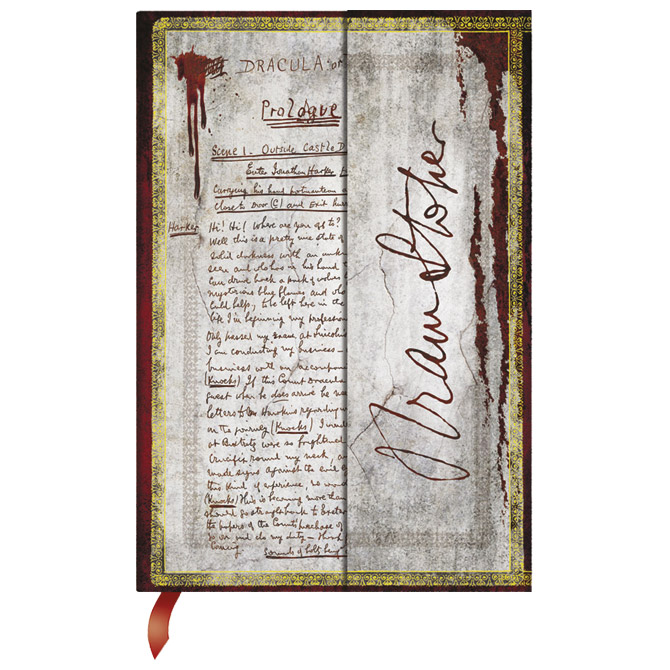 DRACULA: or
Prologue
Scene 1. Outside Castle D
Enter Jonathan Harker
Carrying his hand portmanteau
Close to Door (C) and Exit
Harker Hi! Hi! Where are you off to?
Well this is a pretty nice state of
solid darkness with an unk
seen and who has in his hand
can drive back a pack of wolves
mysterious blue flames and who
could help, to be left here in the
life I'm beginning my profession
Only passed my exam at Lincoln
I am conducting my business
business with our accomp
(Knocks) If this Count Dracula
guest when he does arrive he
letters to Mr Hawkins regarding
on the journey (Knocks) I
at Bistritz were so frightened
Crucifix round my neck, an
made signs against the evil e
this kind of experience, no won
(Knocks) This is becoming more than
should go straight back to Exeter
the papers of the Count's purchase of
so on and do my duty
Coming Sounds of bolts being
Bram Stoker